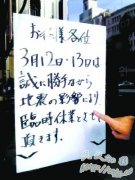 お客様各位
3月12日・13日は
誠に勝手ながら
地震の影響により
臨時休業とさせて
頂きます。